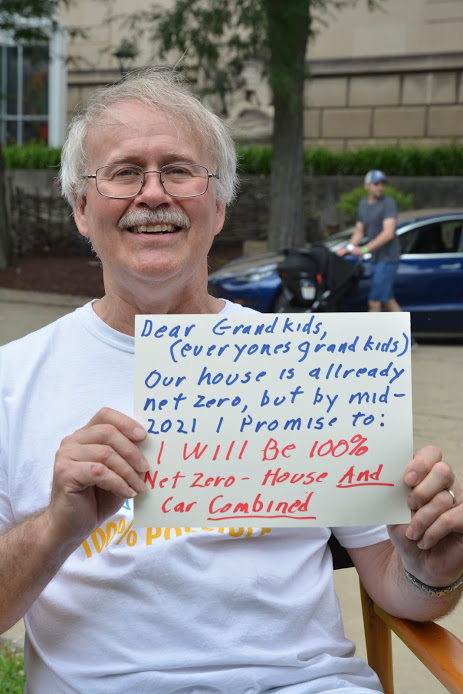 Dear Grandkids,
(everyones grandkids)
Our house is allready
net zero, but by mid-
2021 I Promise to:
I Will Be 100%
Net Zero - House And
Car Combined
100%